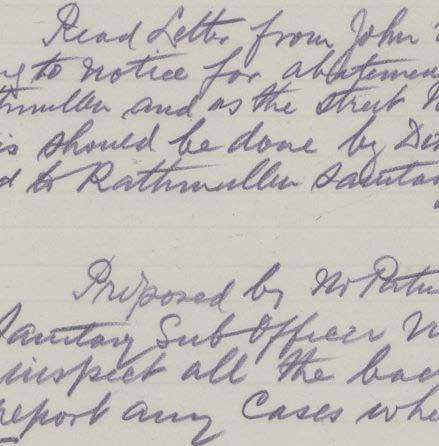 Read Letter from John
to notice for abatemen
thmullen and as the street
is should be done by Dis
d to Rathmullen Sanitary
Proposed by Mr Patri
Sanitary Sub Officer
inspect all the bac
report any Cases whe